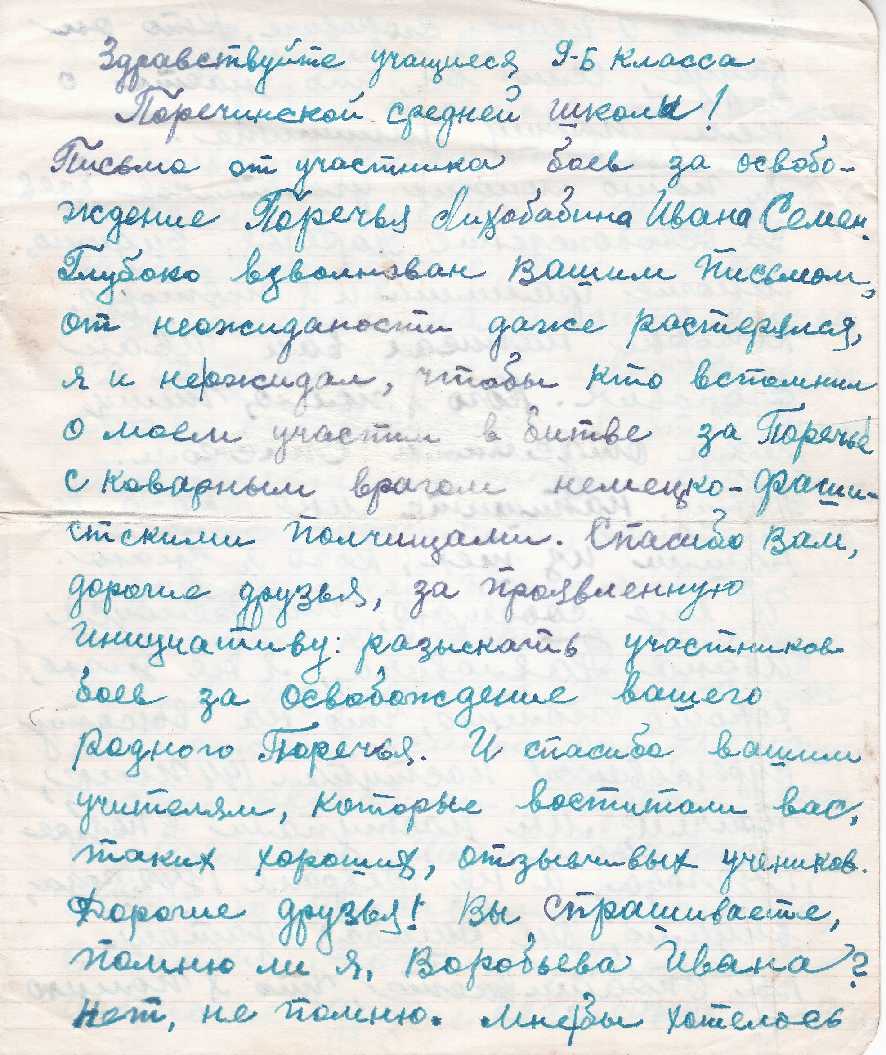 Здравствуйте учащиеся 9-Б класса
Поречинской средней школы!
Письмо от участника боев за освобо-
ждение Поречья Лихобабина Ивана Семен.
Глубоко взволнован Вашим письмом,
от неожиданости даже растерялся,
я и не ожидал, чтобы кто вспомнил
о моем участии в битве за Поречье
с коварным врагом немецко-фаши-
стскими полчищами. Спасибо Вам,
дорогие друзья, за проявленную
инициативу: разыскать участников
боев за освобождение вашего
родного Поречья. И спасибо вашим
учителям, которые воспитали вас,
таких хороших, отзывчивых учеников.
Дорогие друзья! Вы спрашиваете,
помню ли я, Воробьева Ивана?
Нет, не помню. Мне бы хотелось